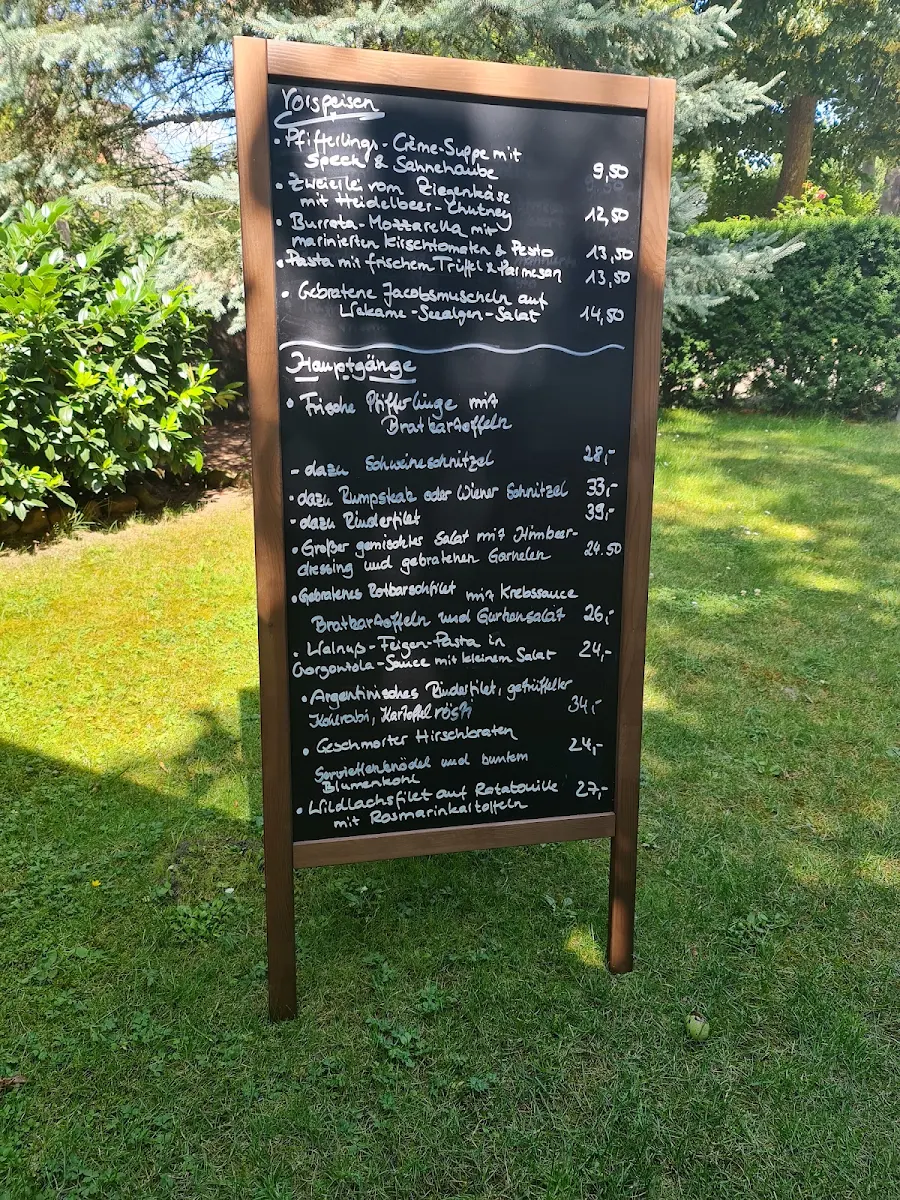 Vorspeisen
• Pfifferlings-Crème-Suppe mit
Speck & Sahnehaube 9,50
• Zweierlei vom Ziegenkäse
mit Heidelbeer-Chutney 12,50
• Burrata-Mozzarella mit
marinierten Kirschtomaten & Pesto 13,50
• Pasta mit frischem Trüffel & Parmesan 13,50
• Gebratene Jacobsmuscheln auf
Wakame-Seealgen-Salat 14,50
Hauptgänge
• Frische Pfifferlinge mit
Bratkartoffeln
- dazu Schweineschnitzel 28,-
• dazu Rumpsteak oder Wiener Schnitzel 33,-
• dazu Rinderfilet 39,-
• Großer gemischter Salat mit Himbeer-
dressing und gebratenen Garnelen 24.50
• Gebratenes Rotbarschfilet mit Krebssauce
Bratkartoffeln und Gurkensalat 26,-
• Walnuß-Feigen-Pasta in
Gorgonzola-Sauce mit kleinem Salat 24,-
• Argentinisches Rinderfilet, getrüffelter
Kohlrabi, Kartoffelrösti 34,-
• Geschmorter Hirschbraten 24,-
Serviettenknödel und buntem
Blumenkohl
• Wildlachsfilet auf Ratatouille 27,-
mit Rosmarinkartoffeln